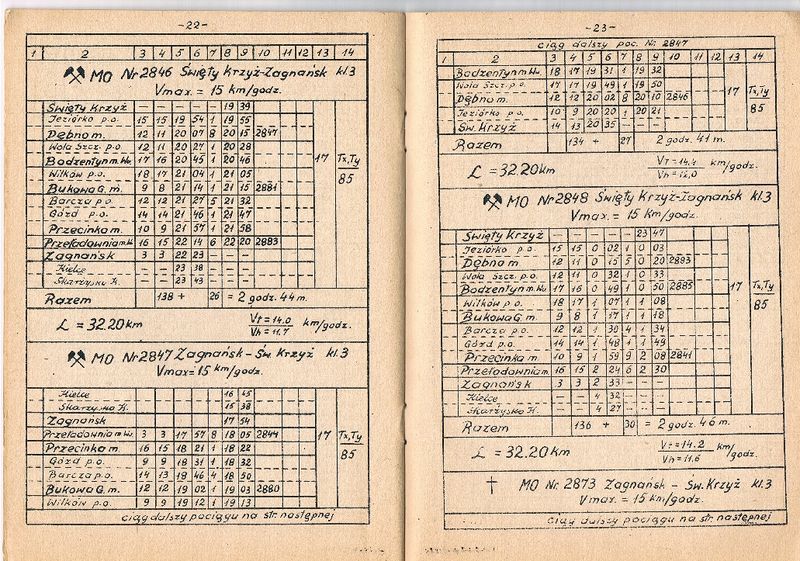 -22-
1 2 3 4 5 6 7 8 9 10 11 12 13 14
MO Nr 2846 Święty Krzyż-Zagnańsk kl.3
Vmax. = 15 km/godz.
Święty Krzyż - - - - - 19 39
Jeziórko p.o. 15 15 19 54 1 19 55
Dębno m. 12 11 20 07 8 20 15 2847
Wola Szcz. p.o. 12 11 20 27 1 20 28
Bodzentyn m.Wu. 17 16 20 45 1 20 46 17 Tx,Ty
Wilków p.o. 18 17 21 04 1 21 05 85
Bukowa G. m. 9 8 21 14 1 21 15 2881
Barcza p.o. 12 12 21 27 5 21 32
Gózd p.o. 14 14 21 46 1 21 47
Przecinka m. 10 9 21 57 1 21 58
Przeładownia m.Wu. 16 15 22 14 6 22 20 2883
Zagnańsk 3 3 22 23 - - -
Kielce - - 23 38 - - -
Skarżysko K. - - 23 43 - - -
Razem 138 + 26 = 2 godz. 44 m.
L = 32.20 km Vt = 14.0 Vh = 11.7 km/godz.
MO Nr 2847 Zagnańsk - Św. Krzyż kl.3
Vmax = 15 km/godz.
Kielce 16 45
Skarżysko K. 15 38
Zagnańsk 17 54
Przeładownia m.Wu. 3 3 17 57 8 18 05 2844 17 Tx,Ty
Przecinka m. 16 15 18 21 1 18 22 85
Gózd p.o. 9 9 18 31 1 18 32
Barcza p.o. 14 13 18 46 4 18 50
Bukowa G. m. 12 12 19 02 1 19 03 2880
Wilków p.o. 9 9 19 12 1 19 13
ciąg dalszy pociągu na str. następnej
-23-
ciąg dalszy poc. Nr 2847
1 2 3 4 5 6 7 8 9 10 11 12 13 14
Bodzentyn m.Wu. 18 17 19 31 1 19 32
Wola Szcz. p.o. 17 17 19 49 1 19 50 17 Tx,Ty
Dębno m. 12 12 20 02 8 20 10 2846 85
Jeziórko p.o. 10 9 20 20 1 20 21
Św. Krzyż 14 13 20 35 - - -
Razem 134 + 27 2 godz. 41 m.
L = 32.20 km Vt = 14.4 Vh = 12.0 km/godz.
MO Nr 2848 Święty Krzyż-Zagnańsk kl.3
Vmax. = 15 km/godz.
Święty Krzyż - - - - - 23 47
Jeziórko p.o. 15 15 0 02 1 0 03
Dębno m. 12 11 0 15 5 0 20 2893
Wola Szcz. p.o. 12 11 0 32 1 0 33
Bodzentyn m.Wu. 17 16 0 49 1 0 50 2885 17 Tx,Ty
Wilków p.o. 18 17 1 07 1 1 08 85
Bukowa G. m. 9 8 1 17 1 1 18
Barcza p.o. 12 12 1 30 4 1 34
Gózd p.o. 14 14 1 48 1 1 49
Przecinka m. 10 9 1 59 9 2 08 2841
Przeładownia m. 16 15 2 24 6 2 30
Zagnańsk 3 3 2 33 - - -
Kielce - - 4 32 - - -
Skarżysko K. - - 4 27 - - -
Razem 136 + 30 = 2 godz. 46 m.
L = 32.20 km Vt = 14.2 Vh = 11.6 km/godz.
† MO Nr 2873 Zagnańsk - Św. Krzyż kl.3
Vmax. = 15 km/godz.
ciąg dalszy pociągu na str. następnej